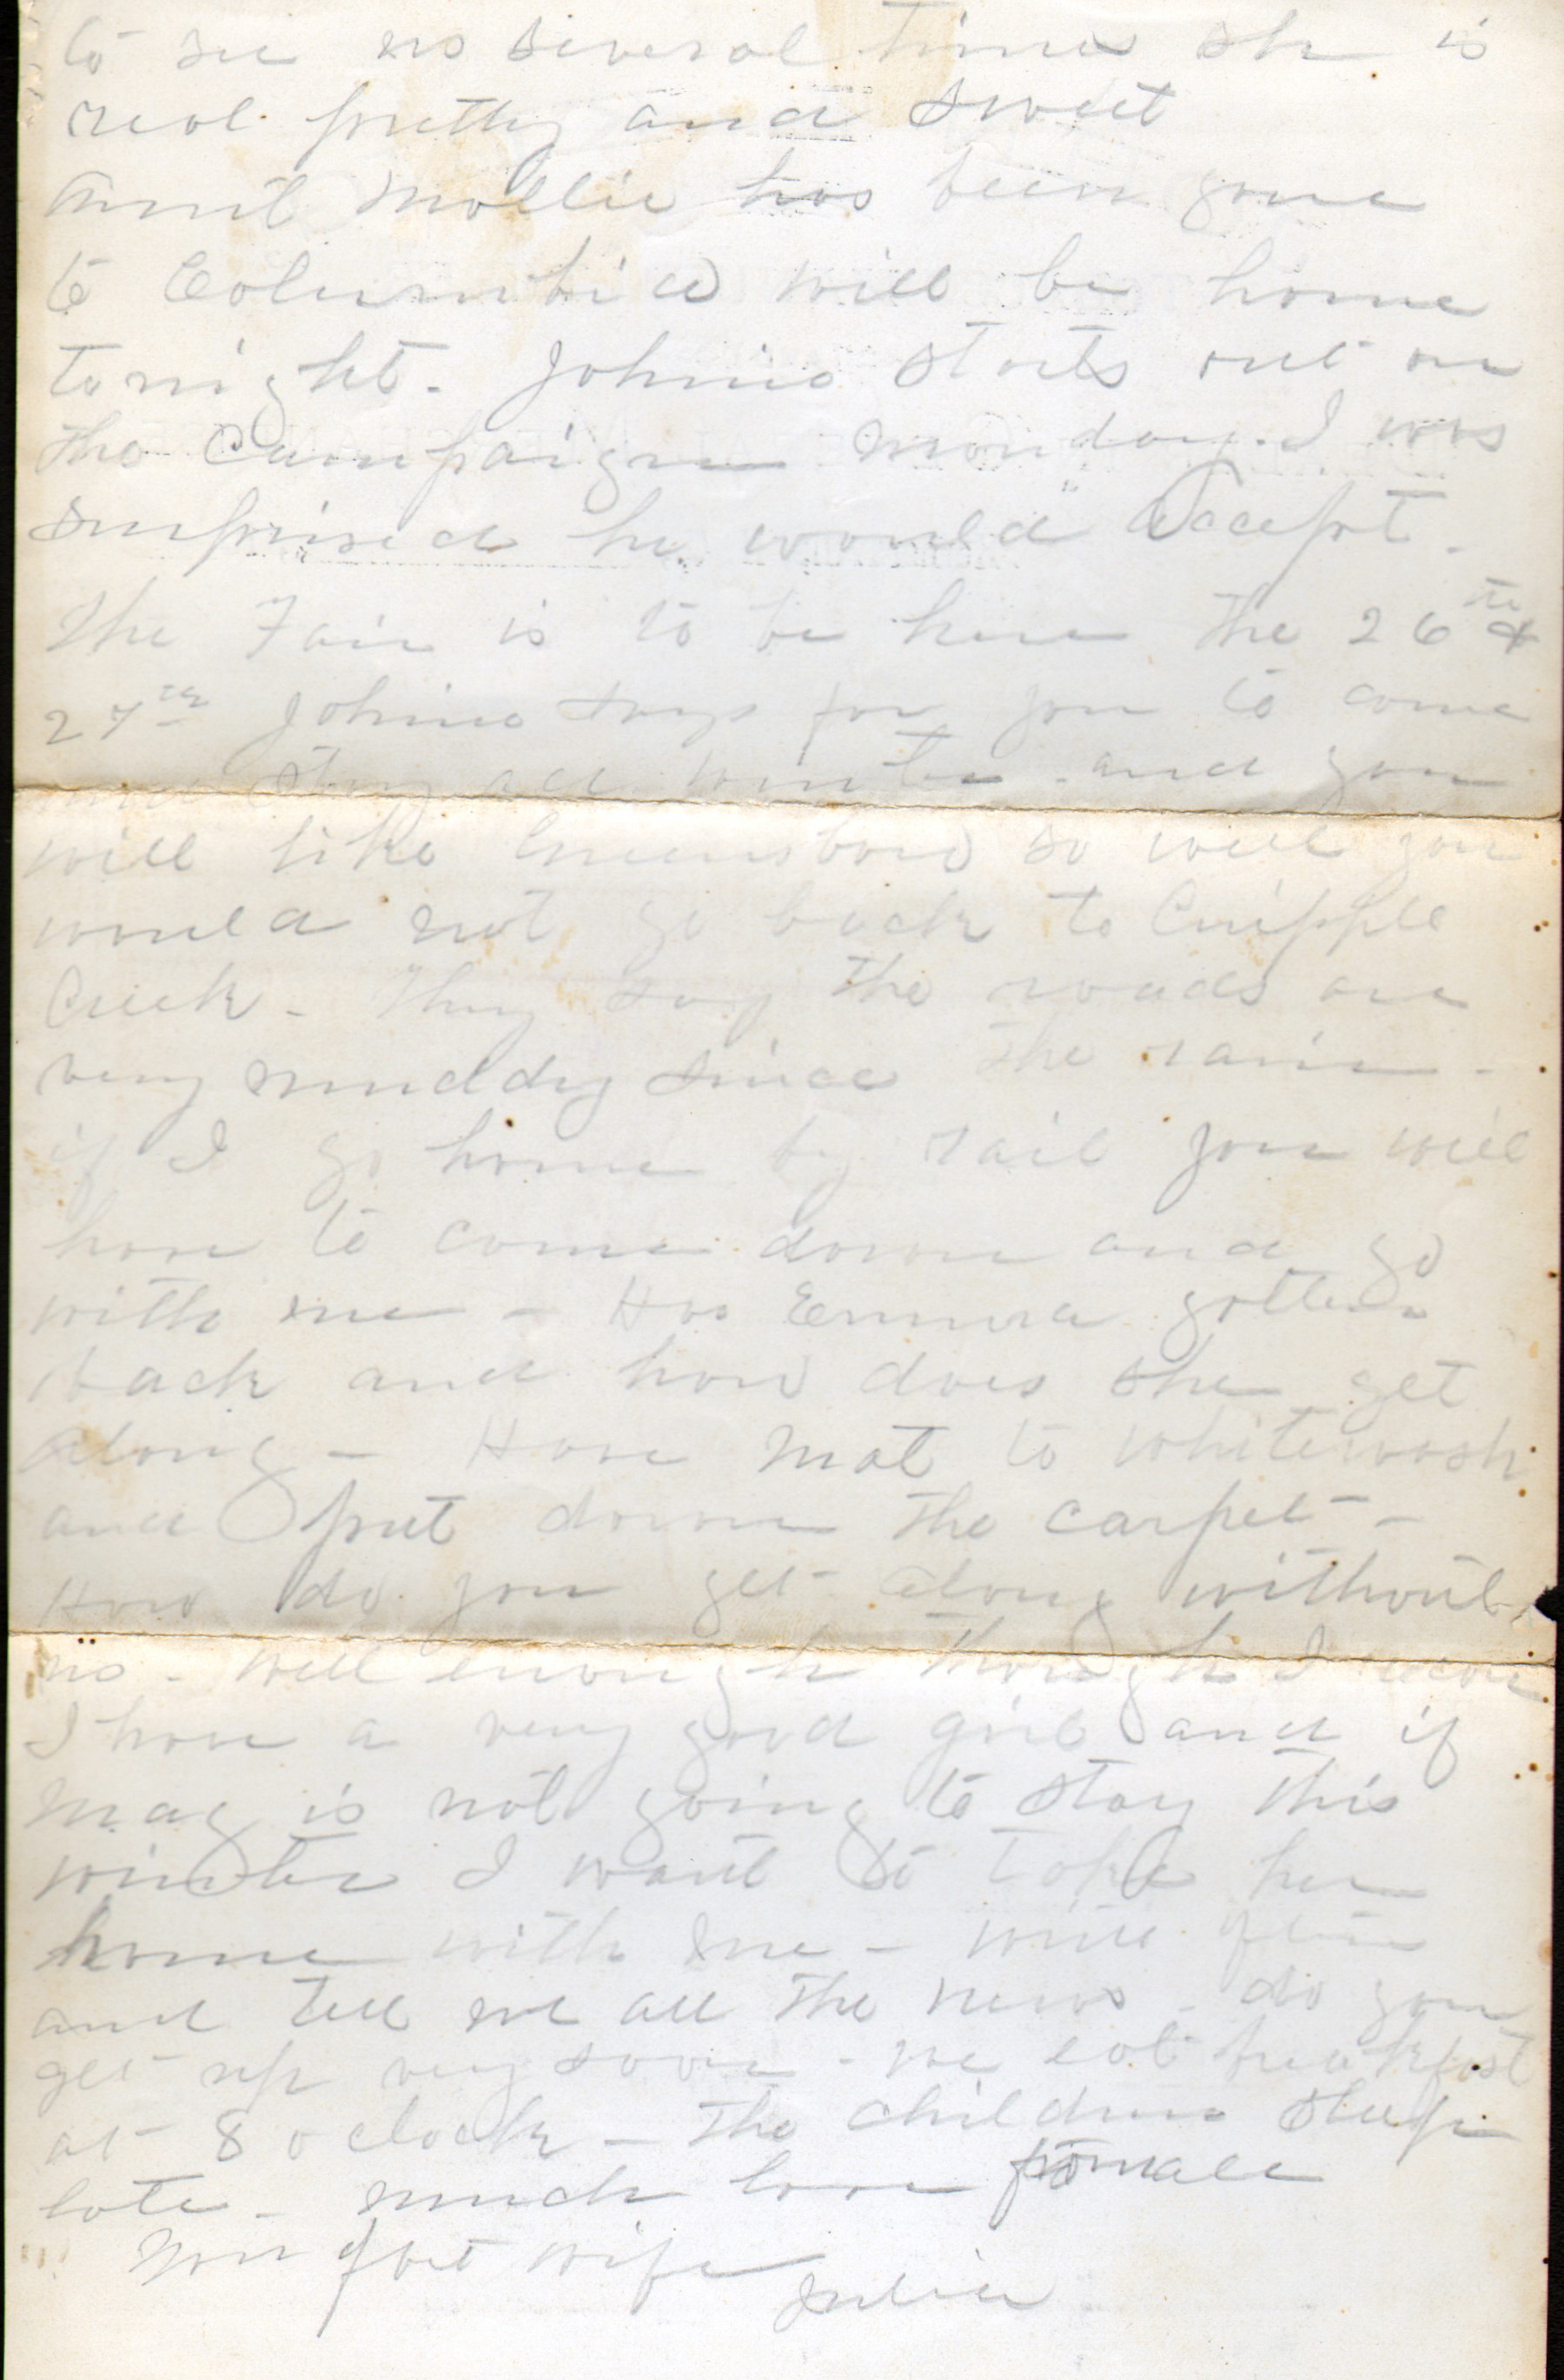 to see us several times she is
real pretty and sweet
Aunt Mollie has been gone
to Columbia will be home
tonight. Johnie starts out on
the Campaign Monday. I was
surprised he would accept.
The Fair is to be here the 26th &
27th Johnie says for you to come
and stay all winter and you
will like Greensboro so well you
would not go back to Cripple
Creek - They say the roads are
very muddy since the rain -
if I go home by rail you will
have to come down and go
with me - Has Emma gotten
back and how does she get
along - Have Mat to whitewash
and put down the carpet -
How do you get along without
us - well enough though I recon
I have a very good girl and if
Mag is not going to stay this
winter I want to take her
home with me - write often
and tell me all the news - do you
get up very soon - we eat breakfast
at 8 o clock - The children sleep
late - much love to all
Your wife
Julia